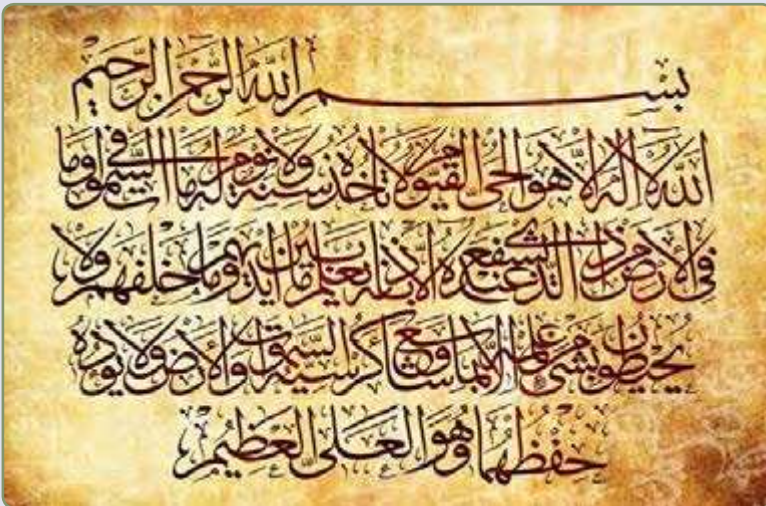 بسم الله الرحمن الرحيم
الله لا اله الا هو الحي القيوم لا تأخذه سنة ولا نوم له ما في السموات وما
في الأرض من ذا الذي يشفع عنده الا بإذنه يعلم ما بين ايديهم وما خلفهم ولا
يحيطون بشيء من علمه الا بما شاء وسع كرسيه السموات والأرض ولا يؤده
حفظهما وهو العلي العظيم